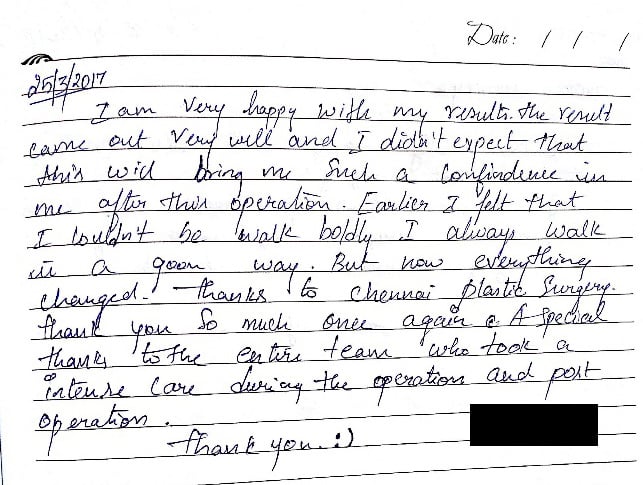 Date: / / /
25/3/2017
I am very happy with my results. the result
came out very well and I didn't expect that
this will bring me such a confindence in
me after this operation. Earlier I felt that
I couldn't be walk boldly I always walk
in a goon way. But now everything
changed. Thanks to Chennai plastic Surgery.
thank you so much once again & A special
thanks to the entire team who took a
intense care during the operation and post
operation.
Thank you. :)